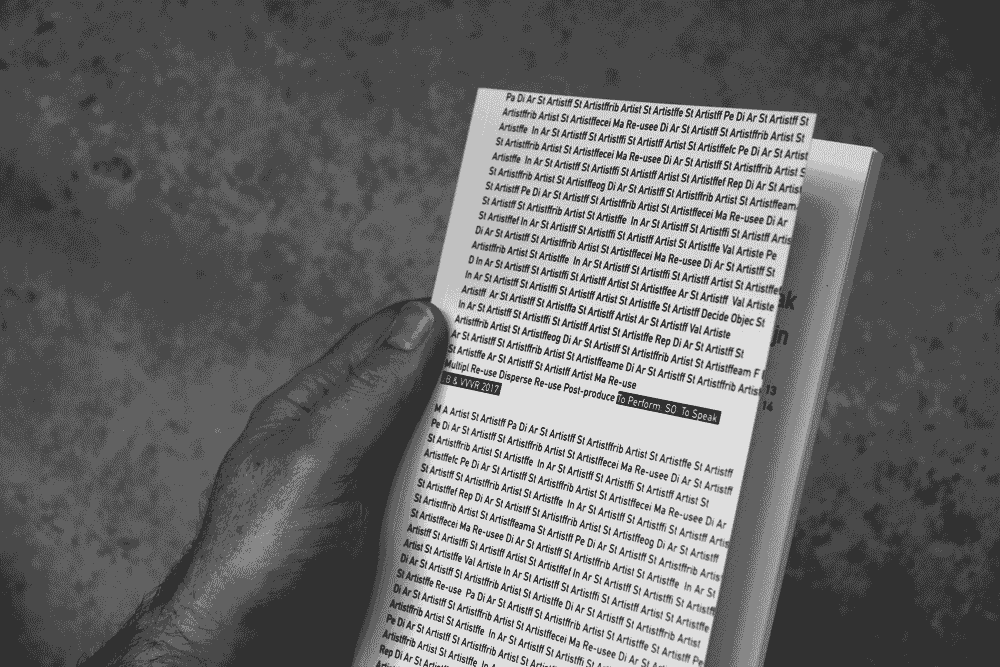 Pa Di Ar St Artistff St Artistffrib Artist St Artistffe St Artistff Pe Di Ar St Artistff St
Artistffrib Artist St Artistffecei Ma Re-usee Di Ar St Artistff St Artistffrib Artist St
Artistffe In Ar St Artistff St Artistffi St Artistff Artist St Artistffefc Pe Di Ar St Artist
St Artistffrib Artist St Artistffecei Ma Re-usee Di Ar St Artistff St Artistffrib Artist S
Artistffe In Ar St Artistff St Artistffi St Artistff Artist St Artistffef Rep Di Ar St Artist
St Artistffrib Artist St Artistffeog Di Ar St Artistff St Artistffrib Artist St Artistffeam
St Artistff Pe Di Ar St Artistff St Artistffrib Artist St Artistffecei Ma Re-usee Di Ar
St Artistff St Artistffrib Artist St Artistffe In Ar St Artistff St Artistffi St Artistff Artis
St Artistffef In Ar St Artistff St Artistffi St Artistff Artist St Artistffe Val Artiste Pe
Di Ar St Artistff St Artistffrib Artist St Artistffecei Ma Re-usee Di Ar St Artistff St
Artistffrib Artist St Artistffe In Ar St Artistff St Artistffi St Artistff Artist St Artistffef
D In Ar St Artistff St Artistffi St Artistff Artist St Artistffee Ar St Artistff Val Artiste
In Ar St Artistff St Artistffi St Artistff Artist St Artistffe St Artistff Decide Objec St
Artistff Ar St Artistff St Artistffa St Artistff Artist Ar St Artistff Val Artiste
In Ar St Artistff St Artistffi St Artistff Artist St Artistffe Rep Di Ar St Artistff St
Artistffrib Artist St Artistffeog Di Ar St Artistff St Artistffrib Artist St Artistffeam F
Ar St Artistff St Artistffrib Artist St Artistffeame Di Ar St Artistff St Artistffrib Artis
St Artistffe Ar St Artistff St Artistff Artist Ma Re-use
Multipl Re-use Disperse Re-use Post-produce To Perform SO To Speak
B & VVVR 2017
ak
jn
13
14
M A Artist St Artistff Pa Di Ar St Artistff St Artistffrib Artist St Artistffe St Artistff
Pe Di Ar St Artistff St Artistffrib Artist St Artistffecei Ma Re-usee Di Ar St Artistff
St Artistffrib Artist St Artistffe In Ar St Artistff St Artistffi St Artistff Artist St
Artistffefc Pe Di Ar St Artistff St Artistffrib Artist St Artistffecei Ma Re-usee Di Ar
St Artistff St Artistffrib Artist St Artistffe In Ar St Artistff St Artistffi St Artistff Artis
St Artistffef Rep Di Ar St Artistff St Artistffrib Artist St Artistffeog Di Ar St Artistff
St Artistffrib Artist St Artistffeama St Artistff Pe Di Ar St Artistff St Artistffrib Artis
St Artistffecei Ma Re-usee Di Ar St Artistff St Artistffrib Artist St Artistffe In Ar St
Artistff St Artistffi St Artistff Artist St Artistffef In Ar St Artistff St Artistffi St Artistff
Artist St Artistffe Val Artiste In Ar St Artistff St Artistffi St Artistff Artist St Artistffe
Di Ar St Artistff St Artistffrib Artist St Artistffe Di Ar St Artistff St Artistffrib Artist
St Artistffe Re-use Pa Di Ar St Artistff St Artistffrib Artist St Artistffe St Artistff Pe
Di Ar St Artistff St Artistffrib Artist St Artistffecei Ma Re-usee Di Ar St Artistff St
Artistffrib Artist St Artistffe In Ar St Artistff St Artistffi St Artistff Artist St
Pe Di Ar St Artistff St Artistffrib Artist St Artistffecei Ma
Artistffrib Artist St Artistffe In Ar St Artistff St Artistffi St
Rep Di Ar St Artistff St Artistffrib Artist St